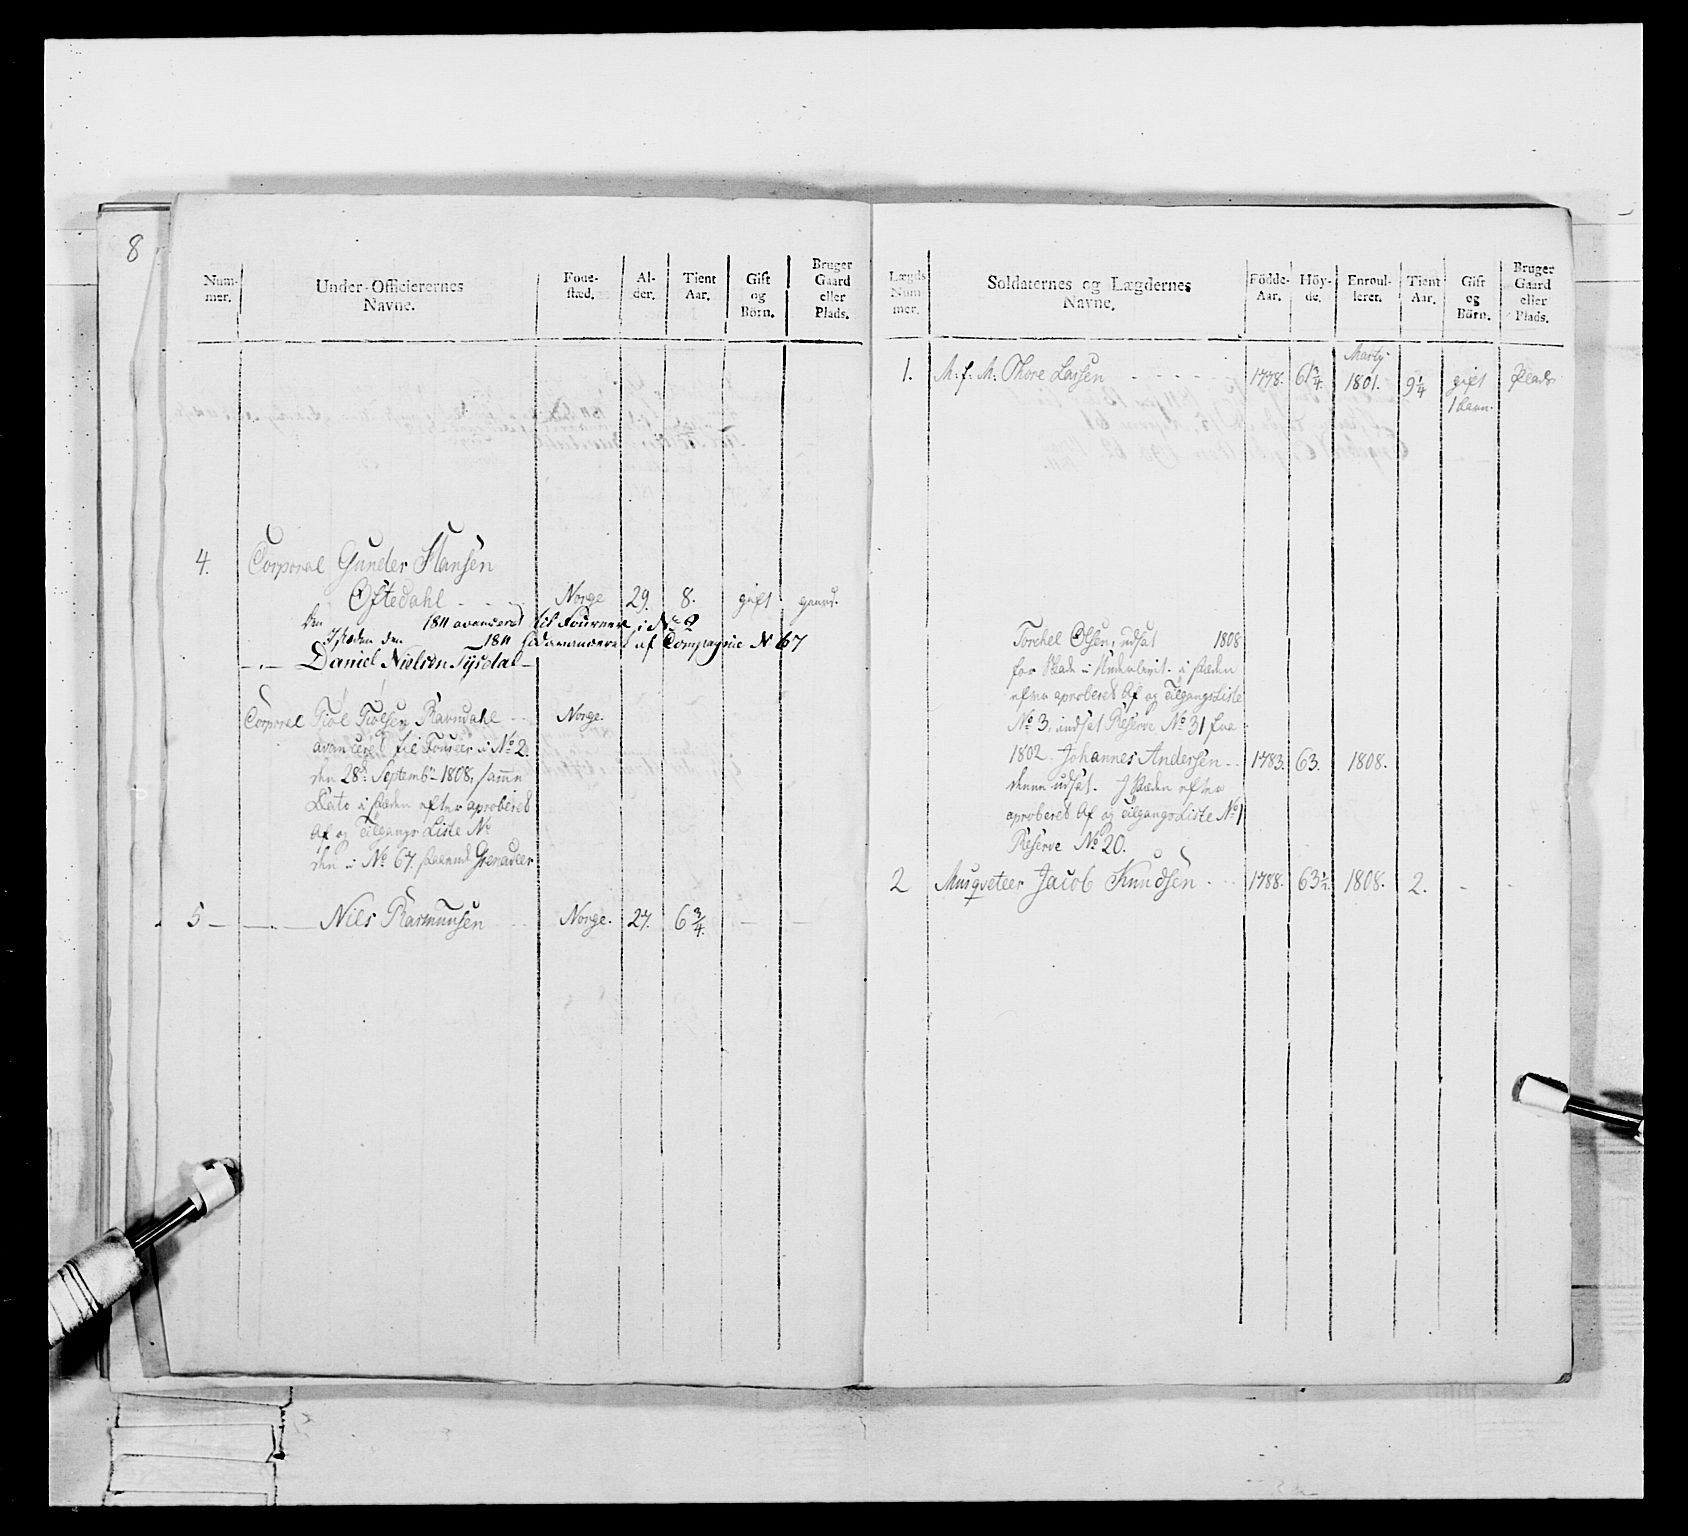 8
Num-
mer.
Under-Officierernes
Navne.
Föde-
stæd.
Al-
der.
Tient
Aar.
Gift
og
Börn.
Bruger
Gaard
eller
Plads.
4. Corporal Gunder Hansen
Oftedahl - - - Norge 29. 8. gift gaard.
den 1811 avanceret til Fourneer i No 2
Isteden den 1811 avanceret af Compagnie No 67
—"— Daniel Nielsen Tysdal —
Corporal Tiøl Tiølsen Ravndahl - - Norge.
avanceret til Foureer i No 2.
den 28de Septembr 1808, samme
Dato i stæden efter aproberet
Af og Tilgangs Liste No
den i No 67. staaende Grenadeer
5 — —"— Nils Rasmussen - - Norge. 27. 6 3/4. — —
Lægds
Num
mer.
Soldaternes og Lægdernes
Navne.
Födde-
Aar.
Höy-
de.
Enroul-
lerer.
Tient
Aar.
Gift
og
Börn.
Bruger
Gaard
eller
Plads.
1. M. f. M. Thore Larsen - - - - 1778. 61 3/4. Marty 1801. 9 1/4 gift Plads
1 barn.
Torchel Olsen, udsat 1808
for Skade i Underlivit. i stæden
efter aproberet Af og Tilgangs Liste
No 3. indsat Reserve No 31 fra
1802. Johannes Andersen - - 1783. 63. 1808.
denne udsat. I stæden efter
aproberet Af og Tilgangs Liste No 1
Reserve No 20.
2 Musqveteer Jacob Knudsen - - - 1788. 63 1/2. 1808. 2. - -